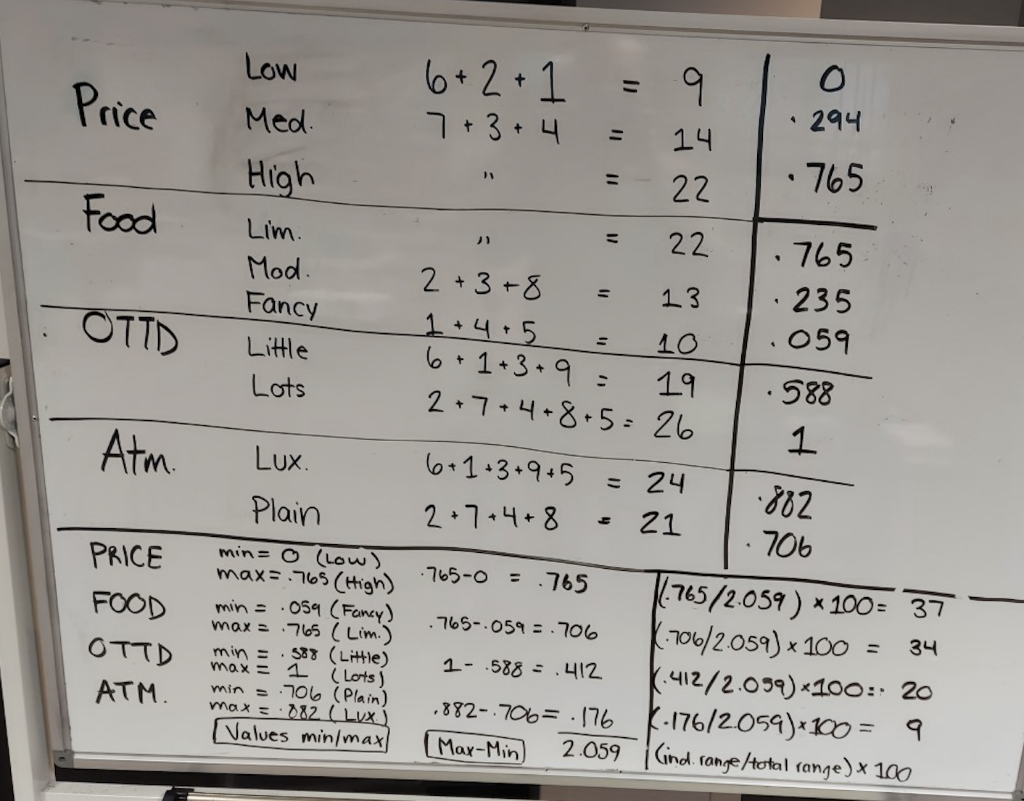 Price Low 6 + 2 + 1 = 9 0
Med. 7 + 3 + 4 = 14 .294
High " = 22 .765
Food Lim. " = 22 .765
Mod. 2 + 3 + 8 = 13 .235
Fancy 1 + 4 + 5 = 10 .059
OTTD Little 6 + 1 + 3 + 9 = 19 .588
Lots 2 + 7 + 4 + 8 + 5 = 26 1
Atm. Lux. 6 + 1 + 3 + 9 + 5 = 24 .882
Plain 2 + 7 + 4 + 8 = 21 .706
PRICE min = 0 (Low)
max = .765 (High) .765-0 = .765 (.765/2.059) x 100 = 37
FOOD min = .059 (Fancy)
max = .765 (Lim.) .765-.059 = .706 (.706/2.059) x 100 = 34
OTTD min = .588 (Little)
max = 1 (Lots) 1- .588 = .412 (.412/2.059) x 100 = 20
ATM. min = .706 (Plain)
max = .882 (Lux.) .882-.706 = .176 (.176/2.059) x 100 = 9
Values min/max Max-Min 2.059 (ind. range/total range) x 100